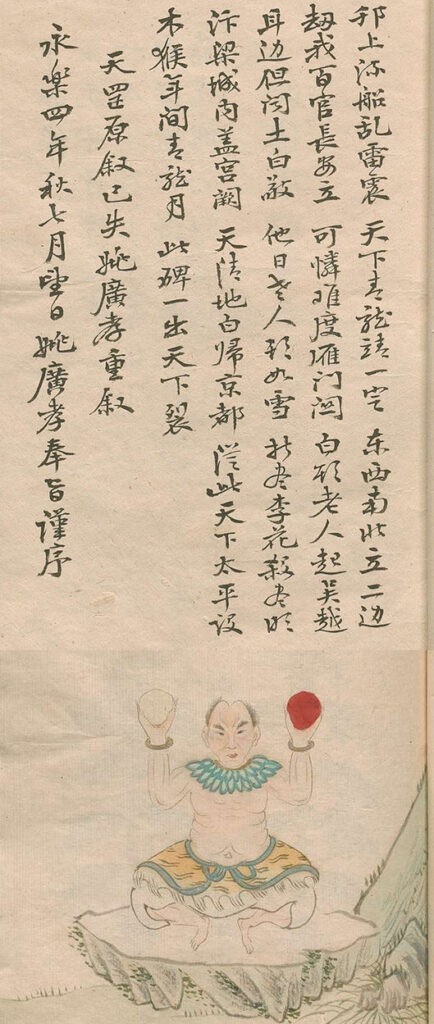 邗上流船乱雷震 天下青龍請一空 东西南北立二边
刼我百官長安立 可憐难度雁门関 白頭老人起吴越
耳边但闻土白敲 他日老人頭如雪 李花殺尽
汴梁城内盖宫闕 天清地白歸京都 從此天下太平設
木猴年间青龍月 此碑一出天下裂
天罡原叙已失姚廣孝重叙
永樂四年秋七月望日姚廣孝奉旨謹序